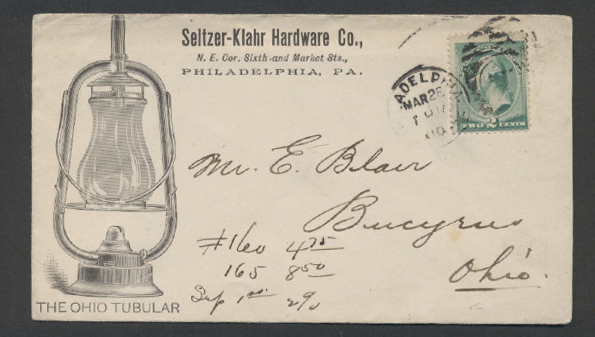 Seltzer-Klahr Hardware Co.,
N. E. Cor. Sixth and Market Sts.,
PHILADELPHIA, PA.
ADELPHIA
MAR 26
TWO 2 CENTS
Mr. E. Blair
Bucyrus
Ohio.
#160 4 25
165 8 50
Sep 1
THE OHIO TUBULAR